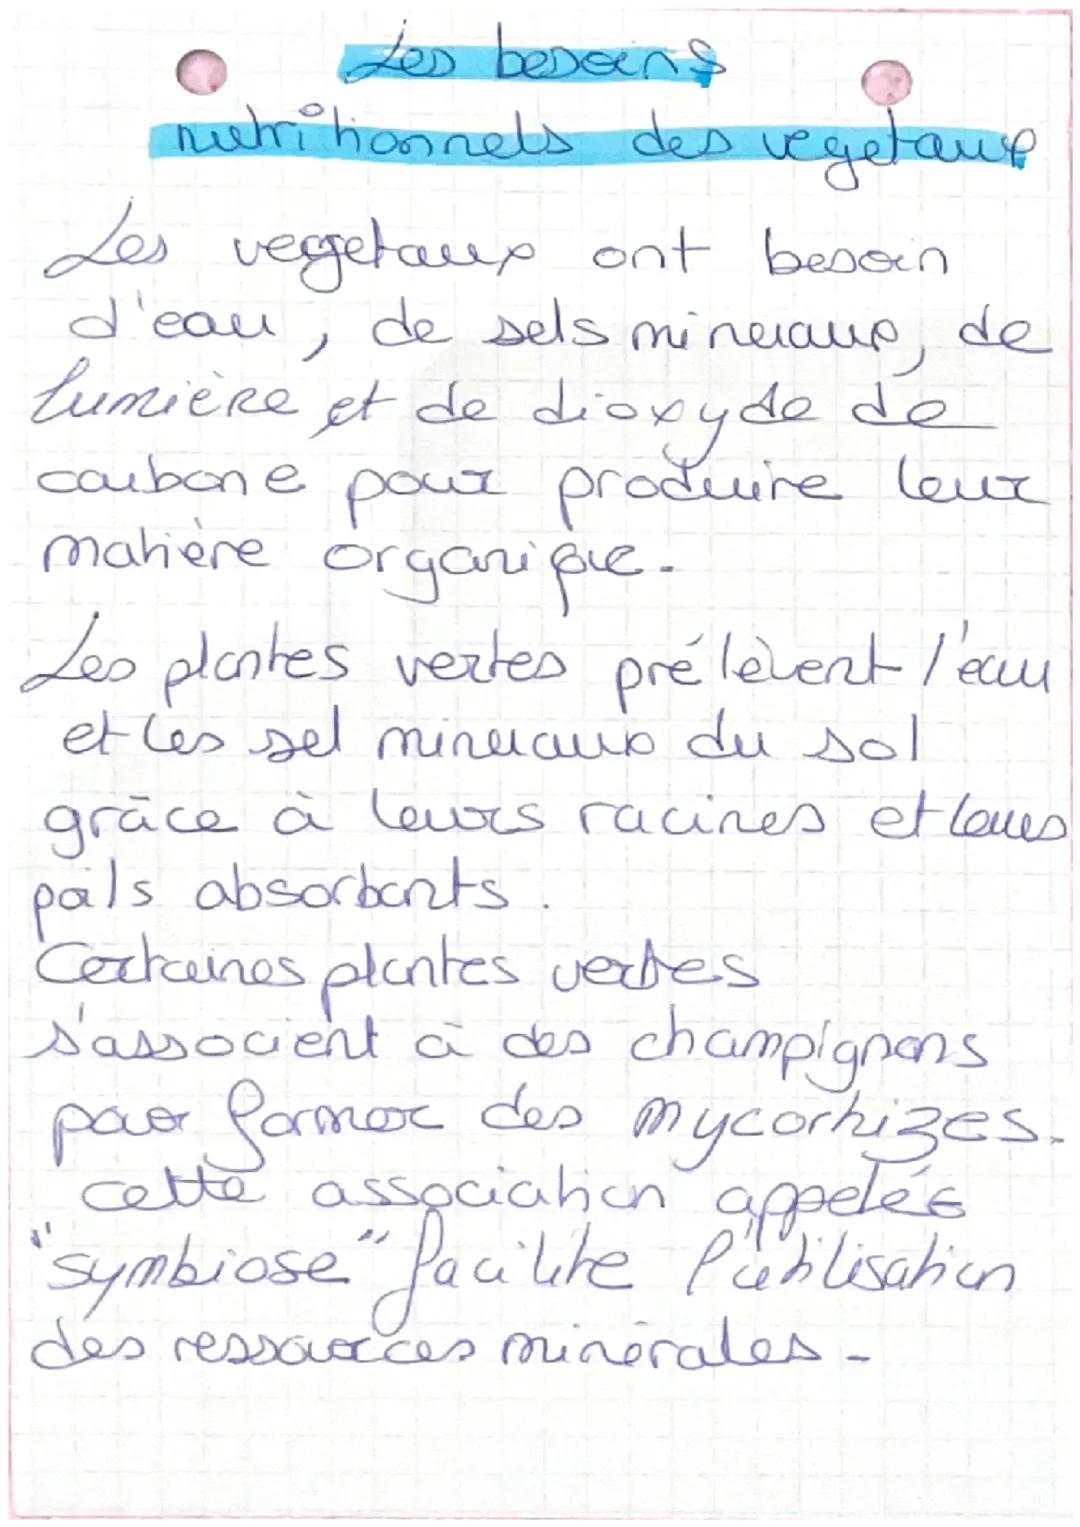 Les besoins
nutritionnels des vegetaux
Les vegetaux ont besoin
d'eau, de sels mineraux, de
lumière et de dioxyde de
carbone pour produire leur
matière organique.
Les plantes vertes prélèvent l'eau
et les sel mineraux du sol
grâce à leurs racines et leurs
poils absorbants.
Certaines plantes vertes
s'associent à des champignons
pour former des mycorhizes.
cette association appelés
"symbiose" facilite l'utilisation
des ressources minérales.